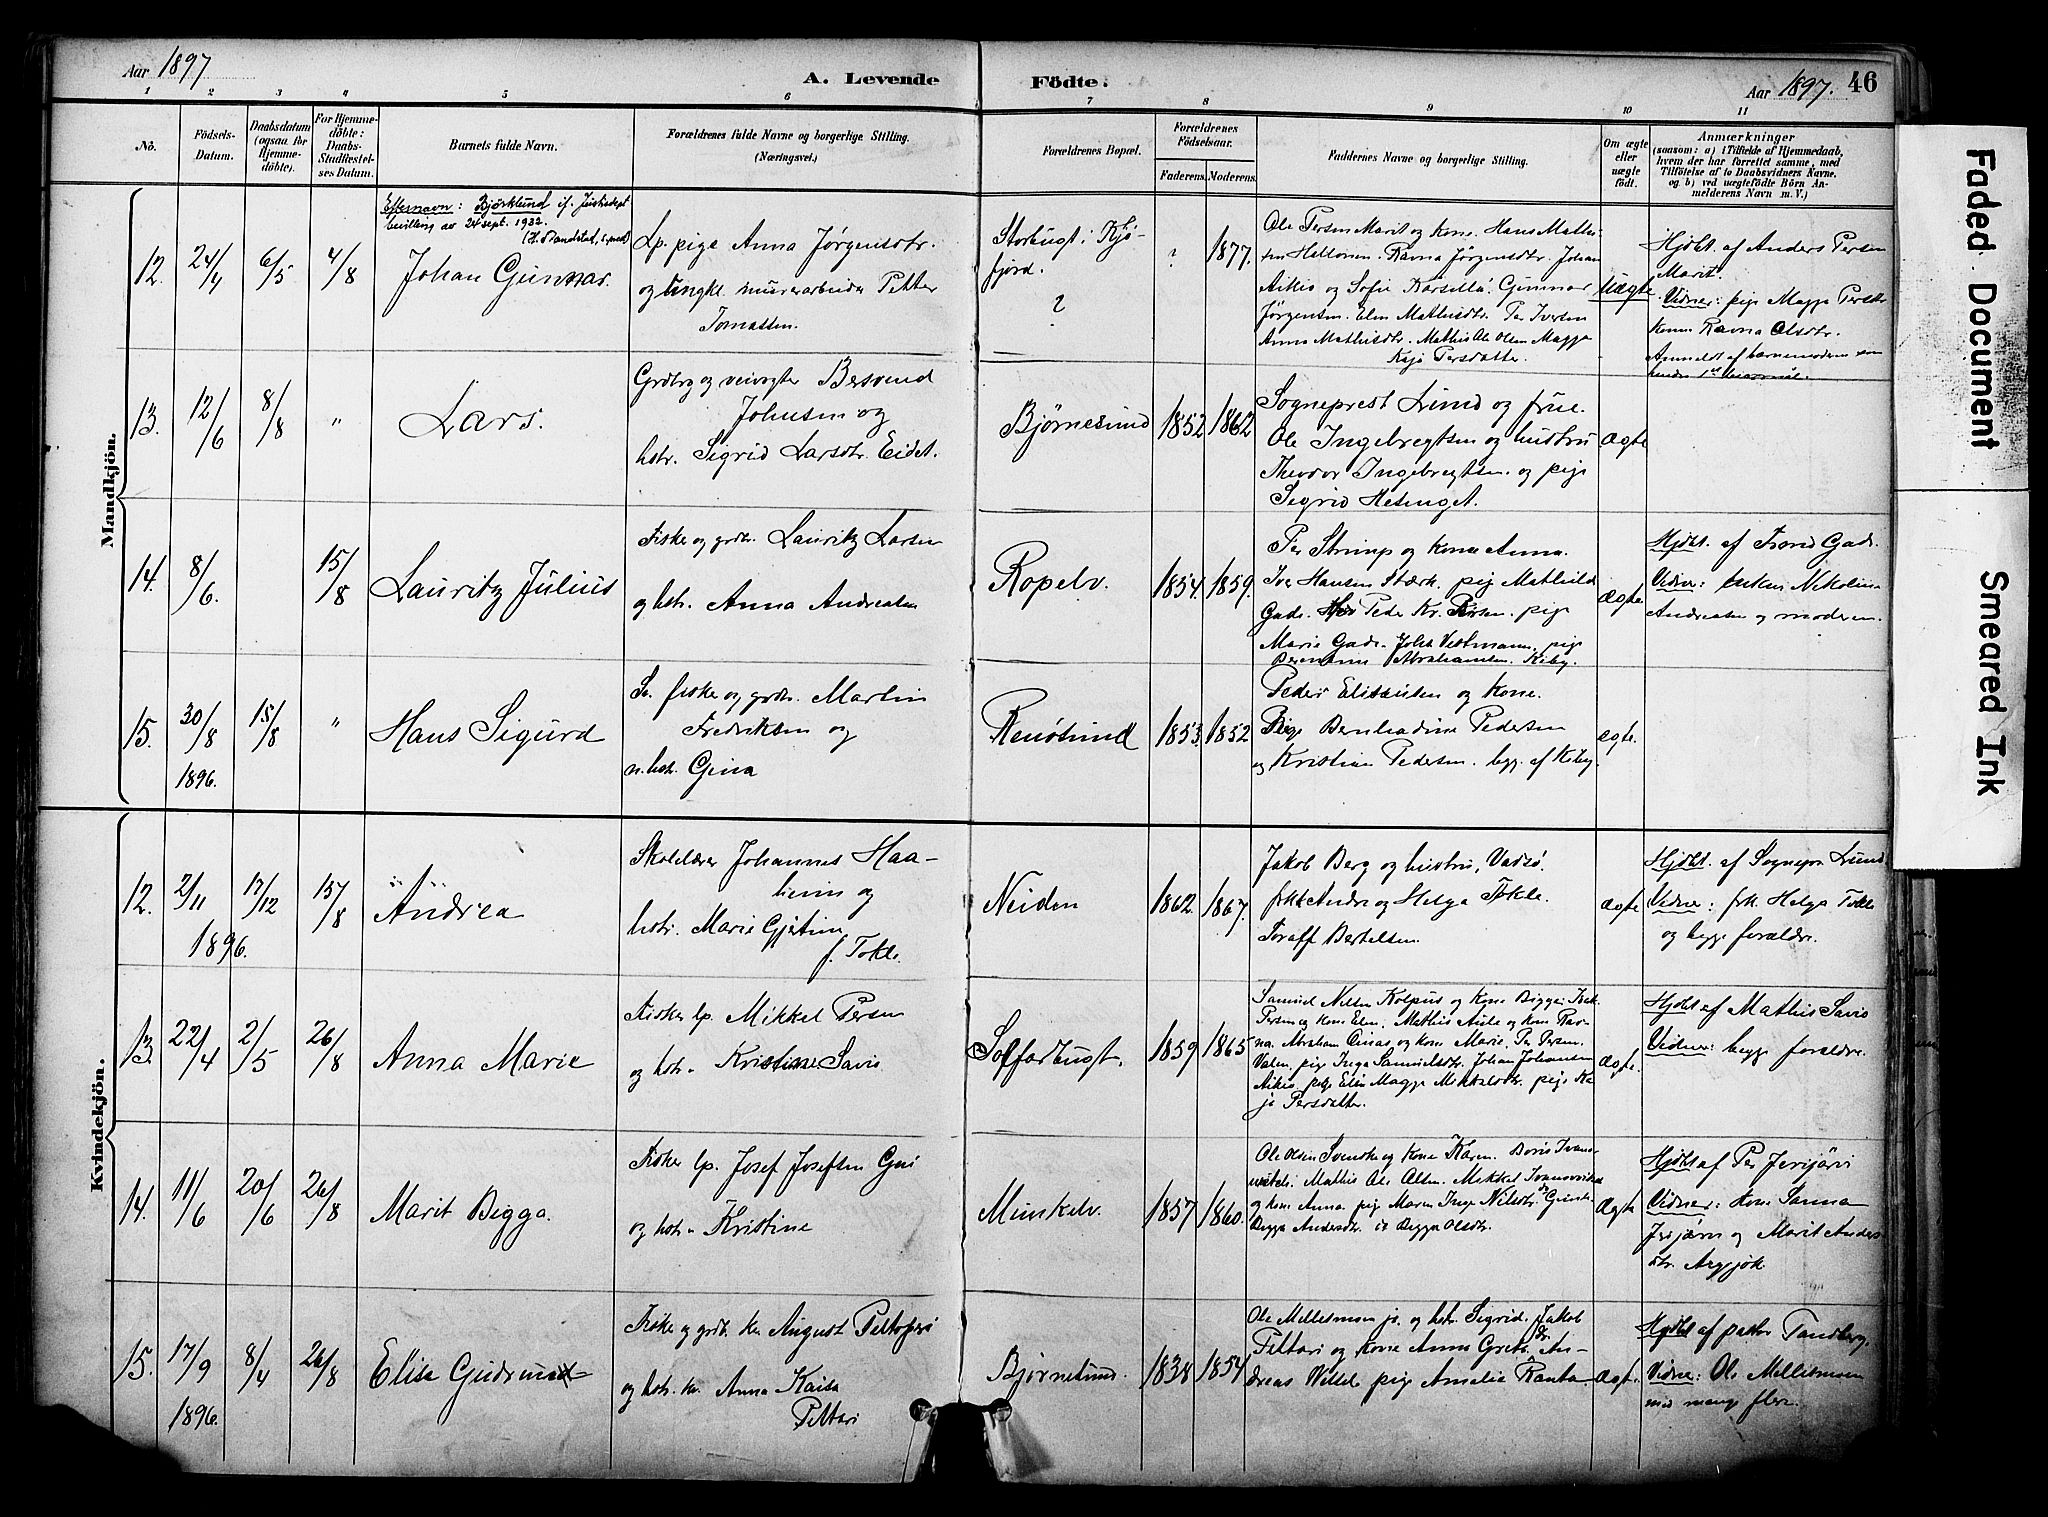 Aar 1897
A. Levende
Födte.
Aar 1897. 46
1 2 3 4 5 6 7 8 9 10 11
No.
Födsels-
Datum.
Daabsdatum
(ogsaa for
Hjemme-
döbte).
For Hjemme-
döbte:
Daabs-
Stadfæstel-
ses Datum.
Barnets fulde Navn.
Forældrenes fulde Navne og borgerlige Stilling.
(Næringsvei.)
Forældrenes Bopæl.
Forældrenes
Födselsaar.
Faderens. Moderens.
Faddernes Navne og borgerlige Stilling.
Om ægte
eller
uægte
födt.
Anmærkninger
(saasom: a) i Tilfælde af Hjemmedaab,
hvem der har forrettet samme, med
Tilföielse af to Daabsvidners Navne.
og b) ved uægtefödte Börn An-
melderens Navn m. V.)
Mandkjön.
12. 24/4 6/5 4/8
Efternavn: Björklund if. Justisdept
bevilling av 24 sept. 1932
Johan Gunnar.
Lp. pige Anna Jørgensdtr.
og ungk. murerarbeider Petter
Tomassen.
Storbugt i Kjø-
fjord.
?
? 1877.
Ole Persen Marit og kone. Hans Mathi-
sen Heltonen. Ravna Jørgensdtr. Johan
Aikio og Sofie Gunnar
Jørgensen. Elen Mathisdtr. Per Iversen
Anna Mathisdtr. Mathis Ole Olsen Magga
Kaja Persdatter.
Uægte
Hjdbt. af Anders Persen
Marit.
Vidner: pige Magga Persdtr
kone Ravna Olsdtr.
Anmeldt af barnemoderen som
hendes 1ste leiermaal.
13. 12/6 8/8 "
Lars.
Grdbrg og veivogter Besvend
Johnsen og
hstr. Sigrid Larsdtr. Eidet.
Bjørnesund 1852 1862
Sogneprest Lund og frue.
Ole Ingebregtsen og hustru
Theodor Ingebregtsen. og pige
Sigrid
ægte
14. 8/6. 15/8
Lauritz Julius
Fisker og grdbr. Lauritz Larsen
og hstr. Anna Andreasen
Ropelv. 1854. 1859.
Per Strimp og kone Anna.
Iver Hansen Stærk. pige Mathilde
Gade. Peder Kr. Persen. pige
Marie Gade. Vestmann. pige
Abrahamsen. Kiby.
ægte
Hjdbt. af Trond Gade.
Vidner: enken Nikoline
Andreasen og moderen.
15. 30/8 1896. 15/8 "
Hans Sigurd
Sn. fisker og grdbr. Martin
Fredriksen og
n. hstr. Gina
Renøsund 1853. 1852
Peder Elisæusen og kone.
Pige Bernhardine Pedersen
og Kristian Pedersen. begge af Kiby.
ægte.
Kvindekjön.
12. 2/11 1896. 17/12 15/8
Andrea
Skolelærer Johannes Haa-
heim og
hstr. Marie Gjertine
f. Tokle.
Neiden 1862. 1867.
Jakob Berg og hustru, Vadsö.
frk. Andrea og Helga Tokle.
Toralf Bertelsen.
ægte
Hjdbt. af Sognepr. Lund
Vidner: frk. Helga Tokle
og begge forældre.
13. 22/4 2/5 26/8
Anna Marie
Fisker lp. Mikkel Persen
og hstr. Kristine Savio
Solfarbugt. 1859 1865
Samuel Nilsen Kolpus og kone Bigga. Isak
Persen og kone Elen. Mathis Aule og kone Rav-
na. Abraham Onias og kone Marie. Per Persen
Valen. pige Inga Samuelsdtr. Johan Johansen
Aikio. pige Elen Magga Mikkelsdtr. pige Ka-
ja Persdatter.
ægte.
Hjdbt af Mathis Savio
Vidner: begge forældre.
14. 11/6 20/6 26/8
Marit Bigga.
Fisker lp. Josef Josefsen
og hstr. Kristine
Munkelv. 1857 1860.
Ole Olsen Svenske og kone Karen. Boris Ivano-
witch. Mathis Ole Olsen. Mikkel Ivanovitsch
og kone Anna. pige Maren Inga Nilsdtr.
Bigga Andersdtr. Bigga Olsdtr.
ægte
Hjdbt af Per Jerijärvi
Vidner: kone Sanna
Jerijärvi og Marit Anders-
dtr. Argjok
15. 17/9 1896. 8/4 26/8
Elisa Gudrun
Fisker og grdbr. kv. August Peltoperi
og hstr. kv. Anna Kaisa
Peltari
Bjørnesund. 1838 1854.
Ole Mellesmoen jr. og hstr. Sigrid. Jakob
Peltari og kone Anna Greta. An-
dreas Wissel pige Amalie Ranta.
ægte.
Hjdbt af pastor Tandberg.
Vidner: Ole Mellesmoen
med mange flere.
Faded Document
Smeared Ink